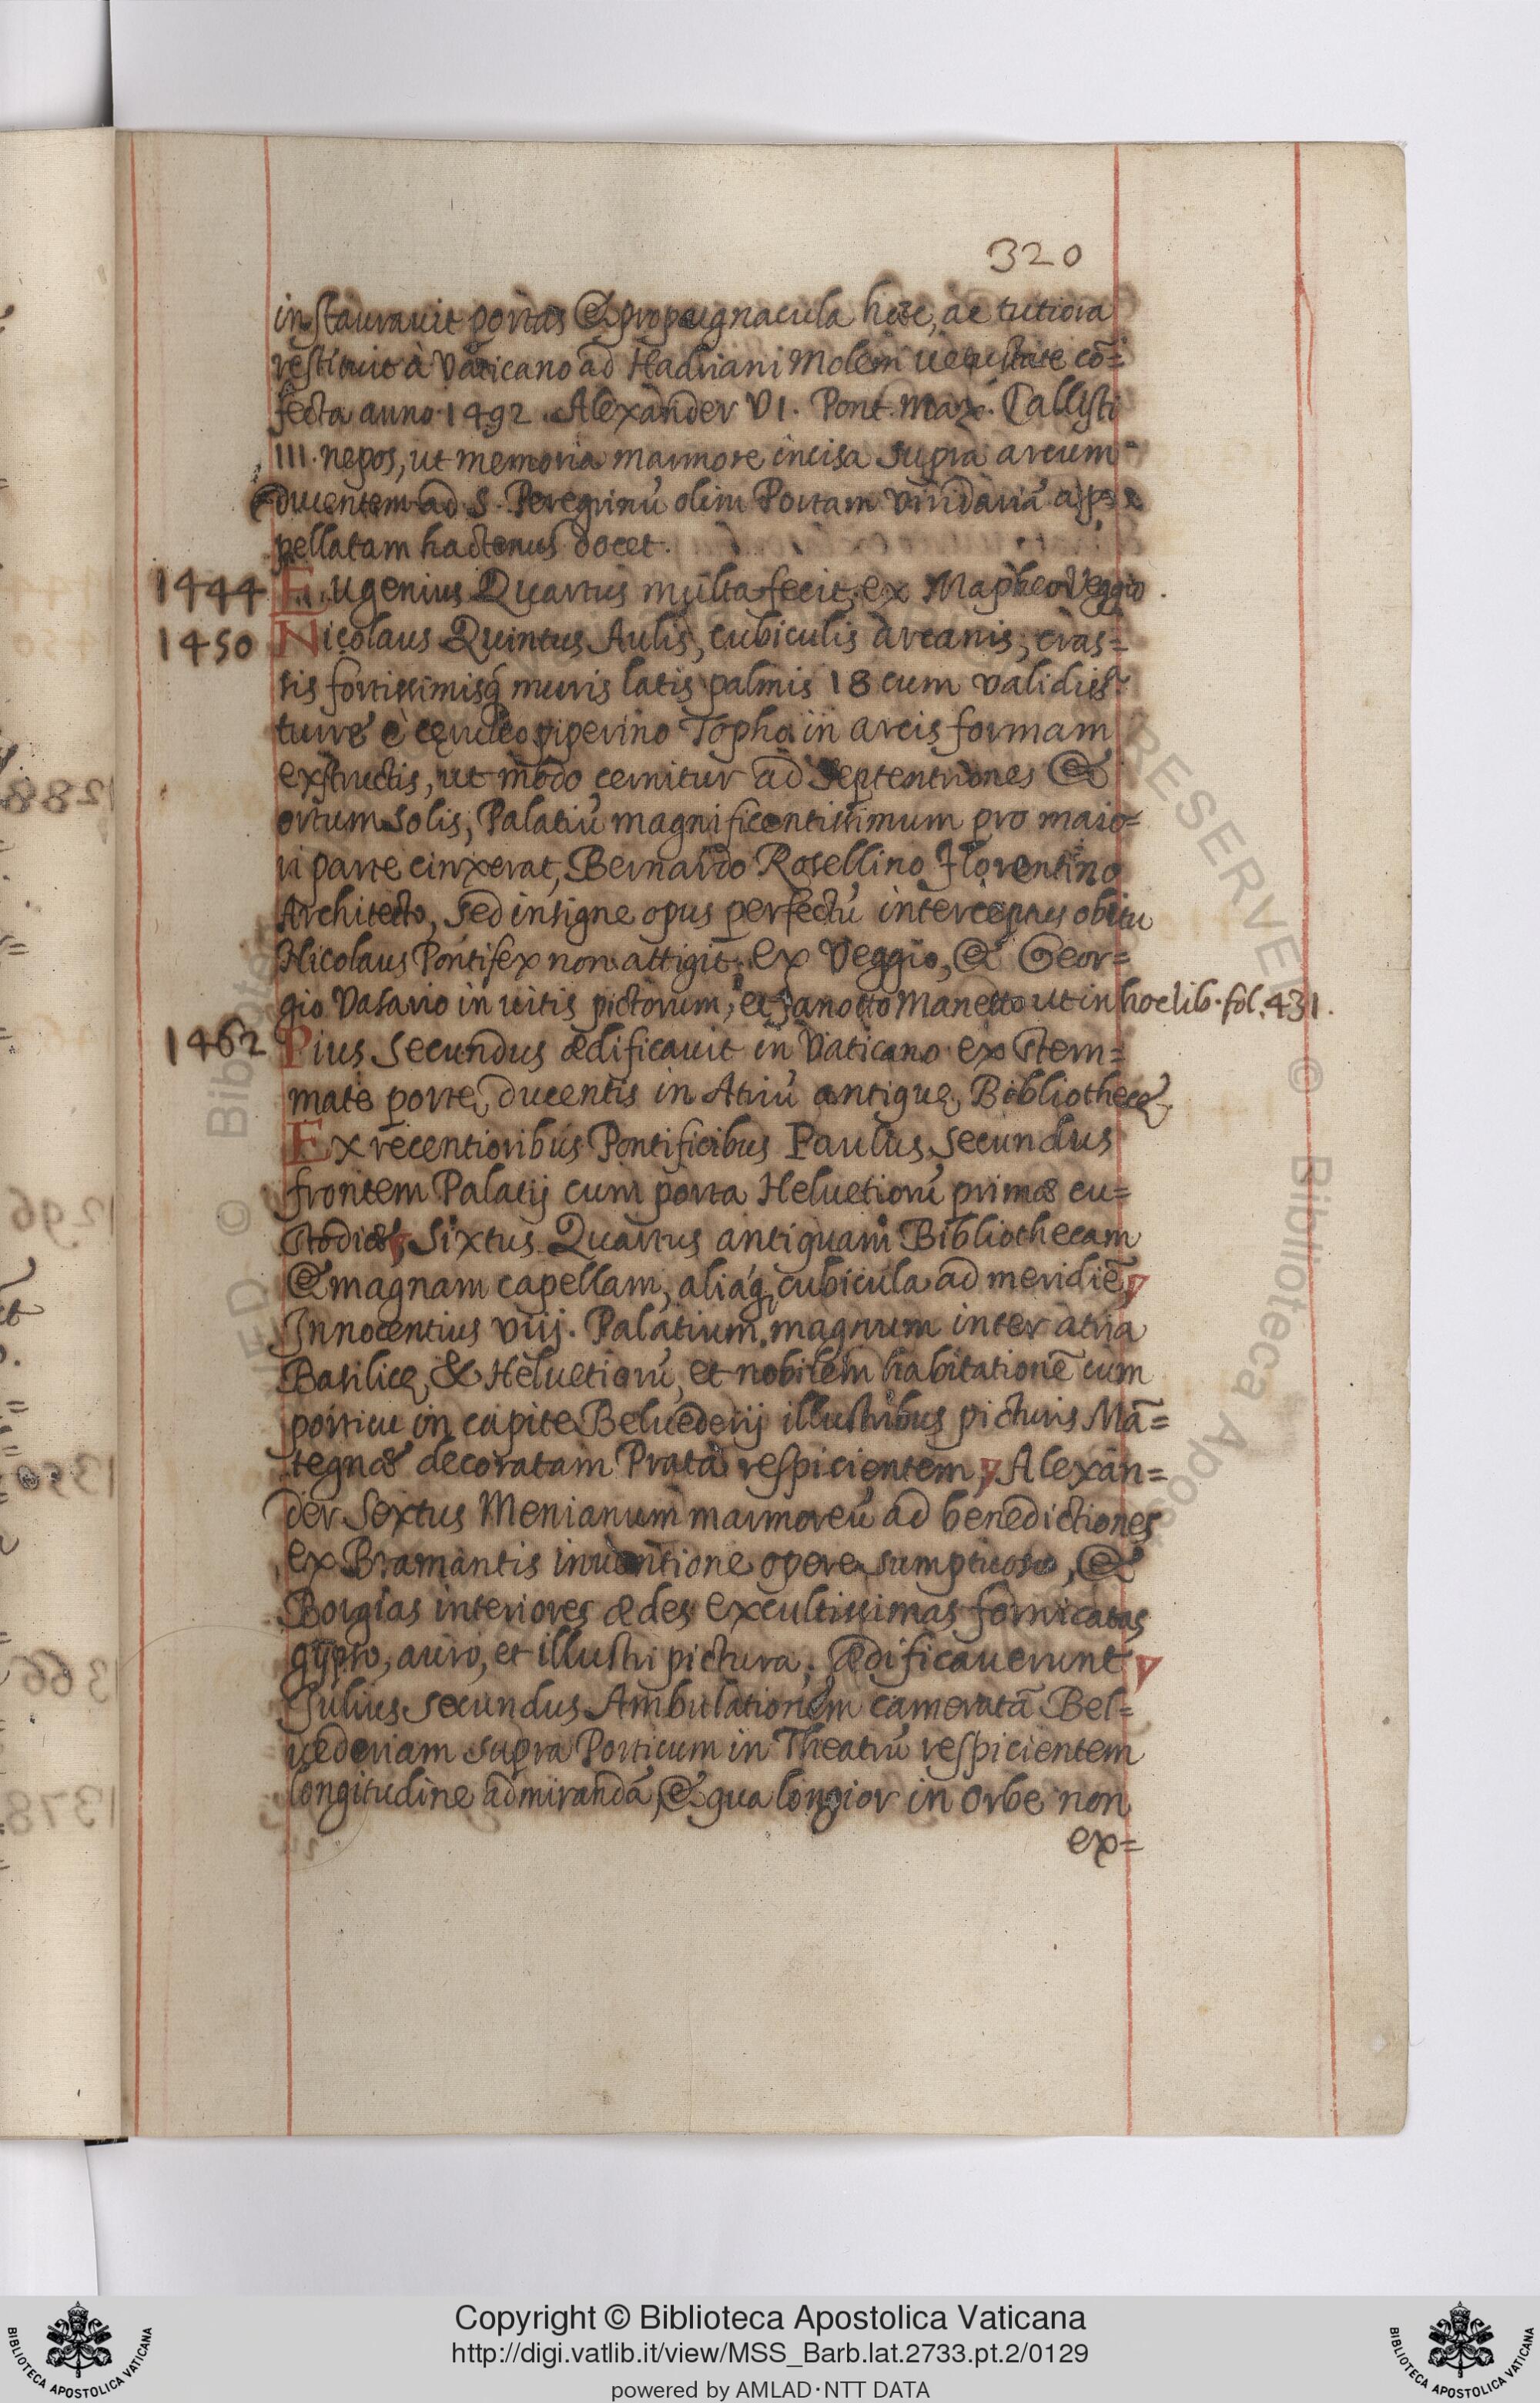 320
instauravit portas & propugnacula hæc, ac tutiora
restituit à Vaticano ad Hadriani Molem uetustate cō=
fecta anno 1492. Alexander VI. Pont. Max. Callisti
III. nepos, ut memoria marmore incisa supra arcum
ducentem ad S. Peregrinū olim Portam Viridariā ap=
pellatam hactenus docet.
1444 Eugenius Quartus multa fecit, ex Mapheo Veggio.
1450 Nicolaus Quintus Aulis, cubiculis arcanis, cras=
sis fortissimisq́ muris latis palmis 18 cum validiss.
turre è ceruleo piperino Topho in arcis formam
exstructis, ut modo cernitur ad Septentriones &
ortum solis, Palatiū magnificentissimum pro maio=
ri parte cinxerat, Bernardo Rosellino Florentino
Architecto, sed insigne opus perfectū interceptus obitu
Nicolaus Pontifex non attigit, ex Veggio, & Geor=
gio Vasario in uitis pictorum, et Janotto Manetto ut in hoc lib. fol. 431.
1462 Pius Secundus ædificauit in Vaticano ex stem=
mate portę ducentis in Atriū antiquę Bibliothecę.
Ex recentioribus Pontificibus Paulus Secundus
frontem Palatij cum porta Heluetiorū primæ cu=
stodiæ, Sixtus Quartus antiquam Bibliothecam
& magnam capellam, aliáq, cubicula ad meridiē,
Innocentius viij. Palatium magnum inter atria
Basilicę, & Heluetiorū, et nobilem habitationē cum
porticu in capite Beluederij illustribus picturis Mā=
tegnæ decoratam Prata respicientem, Alexan=
der Sextus Menianum marmoreū ad benedictiones
ex Bramantis inuentione opere sumptuoso, &
Borgias interiores ædes excultissimas fornicatas
gypso, auro, et illustri pictura, ædificauerunt,
Julius Secundus Ambulationem cameratā Bel=
uederiam supra Porticum in Theatrū respicientem
longitudine admirandā, & qua longior in Orbe non
ex=
1288
1296
1350
1366
1378
Copyright © Biblioteca Apostolica Vaticana
http://digi.vatlib.it/view/MSS_Barb.lat.2733.pt.2/0129
powered by AMLAD·NTT DATA
BIBLIOTECA APOSTOLICA VATICANA
BIBLIOTECA APOSTOLICA VATICANA